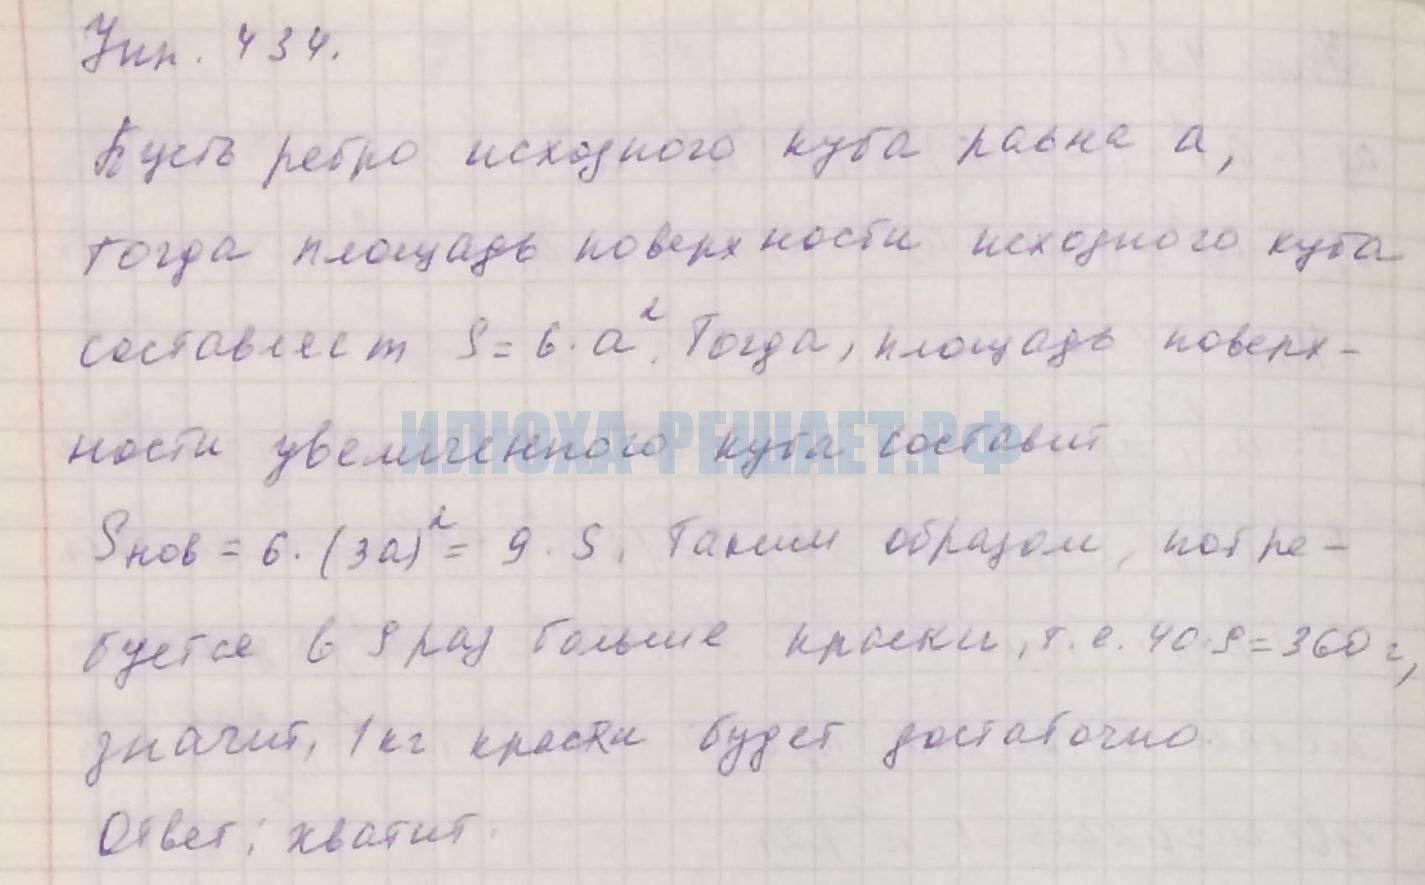 Упр. 434.
Пусть ребро исходного куба равна a,
тогда площадь поверхности исходного куба
составляет S = 6 · a². Тогда, площадь поверх-
ИЛЮХА-РЕШАЕТ.РФ
ности увеличенного куба составит
Sнов = 6 · (3a)² = 9 · S. Таким образом, потре-
буется в 9 раз больше краски, т.е. 40·9=360 г,
значит, 1 кг краски будет достаточно.
Ответ: хватит.